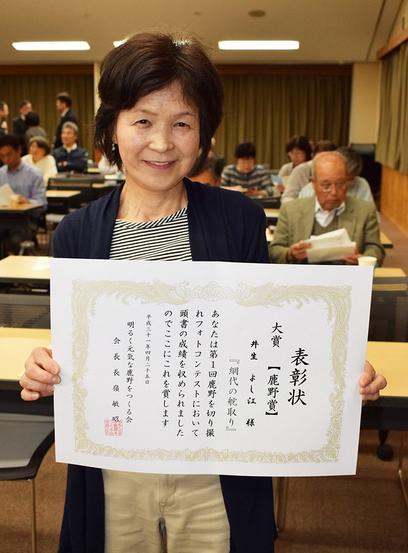 表彰状
大賞【鹿野賞】
『網代の舵取り』
井生 よし江 様
あなたは第1回鹿野を切り撮
れフォトコンテストにおいて
頭書の成績を収められました
のでここにこれを賞します
平成三十一年四月二十五日
明るく元気な鹿野をつくる会
会長 長嶺 敏昭